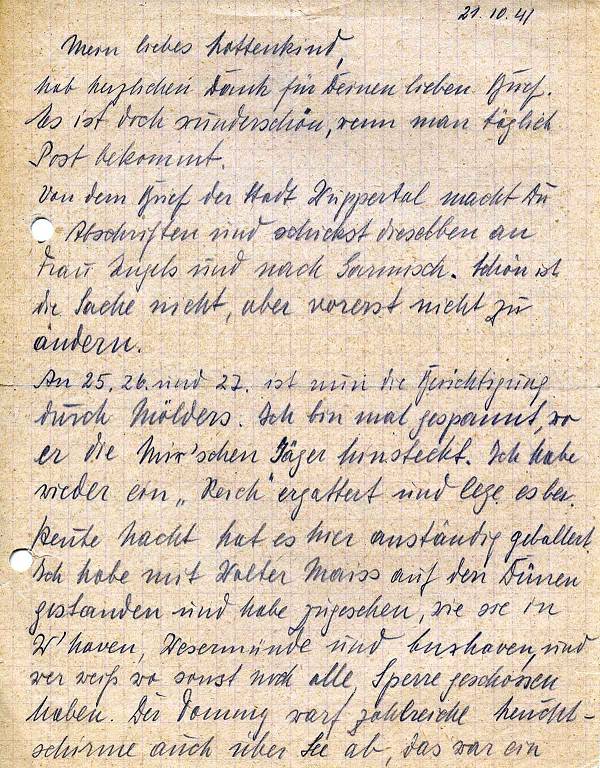 21.10.41
Mein liebes Kattenkind,
hab herzlichen Dank für Deinen lieben Brief.
Es ist doch wunderschön, wenn man täglich
Post bekommt.
Von dem Brief der Stadt Wuppertal macht Du
Abschriften und schickst dieselben an
Frau Engels und nach Garmisch. Schön ist
die Sache nicht, aber vorerst nicht zu
ändern.
An 25, 26. und 27. ist nun die Besichtigung
durch Mölders. Ich bin mal gespannt, wo
er die Mix'schen Jäger hinsteckt. Ich habe
wieder ein „Reich" ergattert und lege es bei.
Heute Nacht hat es hier anständig geballert.
Ich habe mit Walter Maiss auf den Dünen
gestanden und habe zugesehen, wie sie in
W'haven, Wesermünde und Cuxhaven, und
wer weiß wo sonst noch alle, Sperre geschossen
haben. Der Tommy warf zahlreiche Leucht-
schirme auch über See ab, das war ein